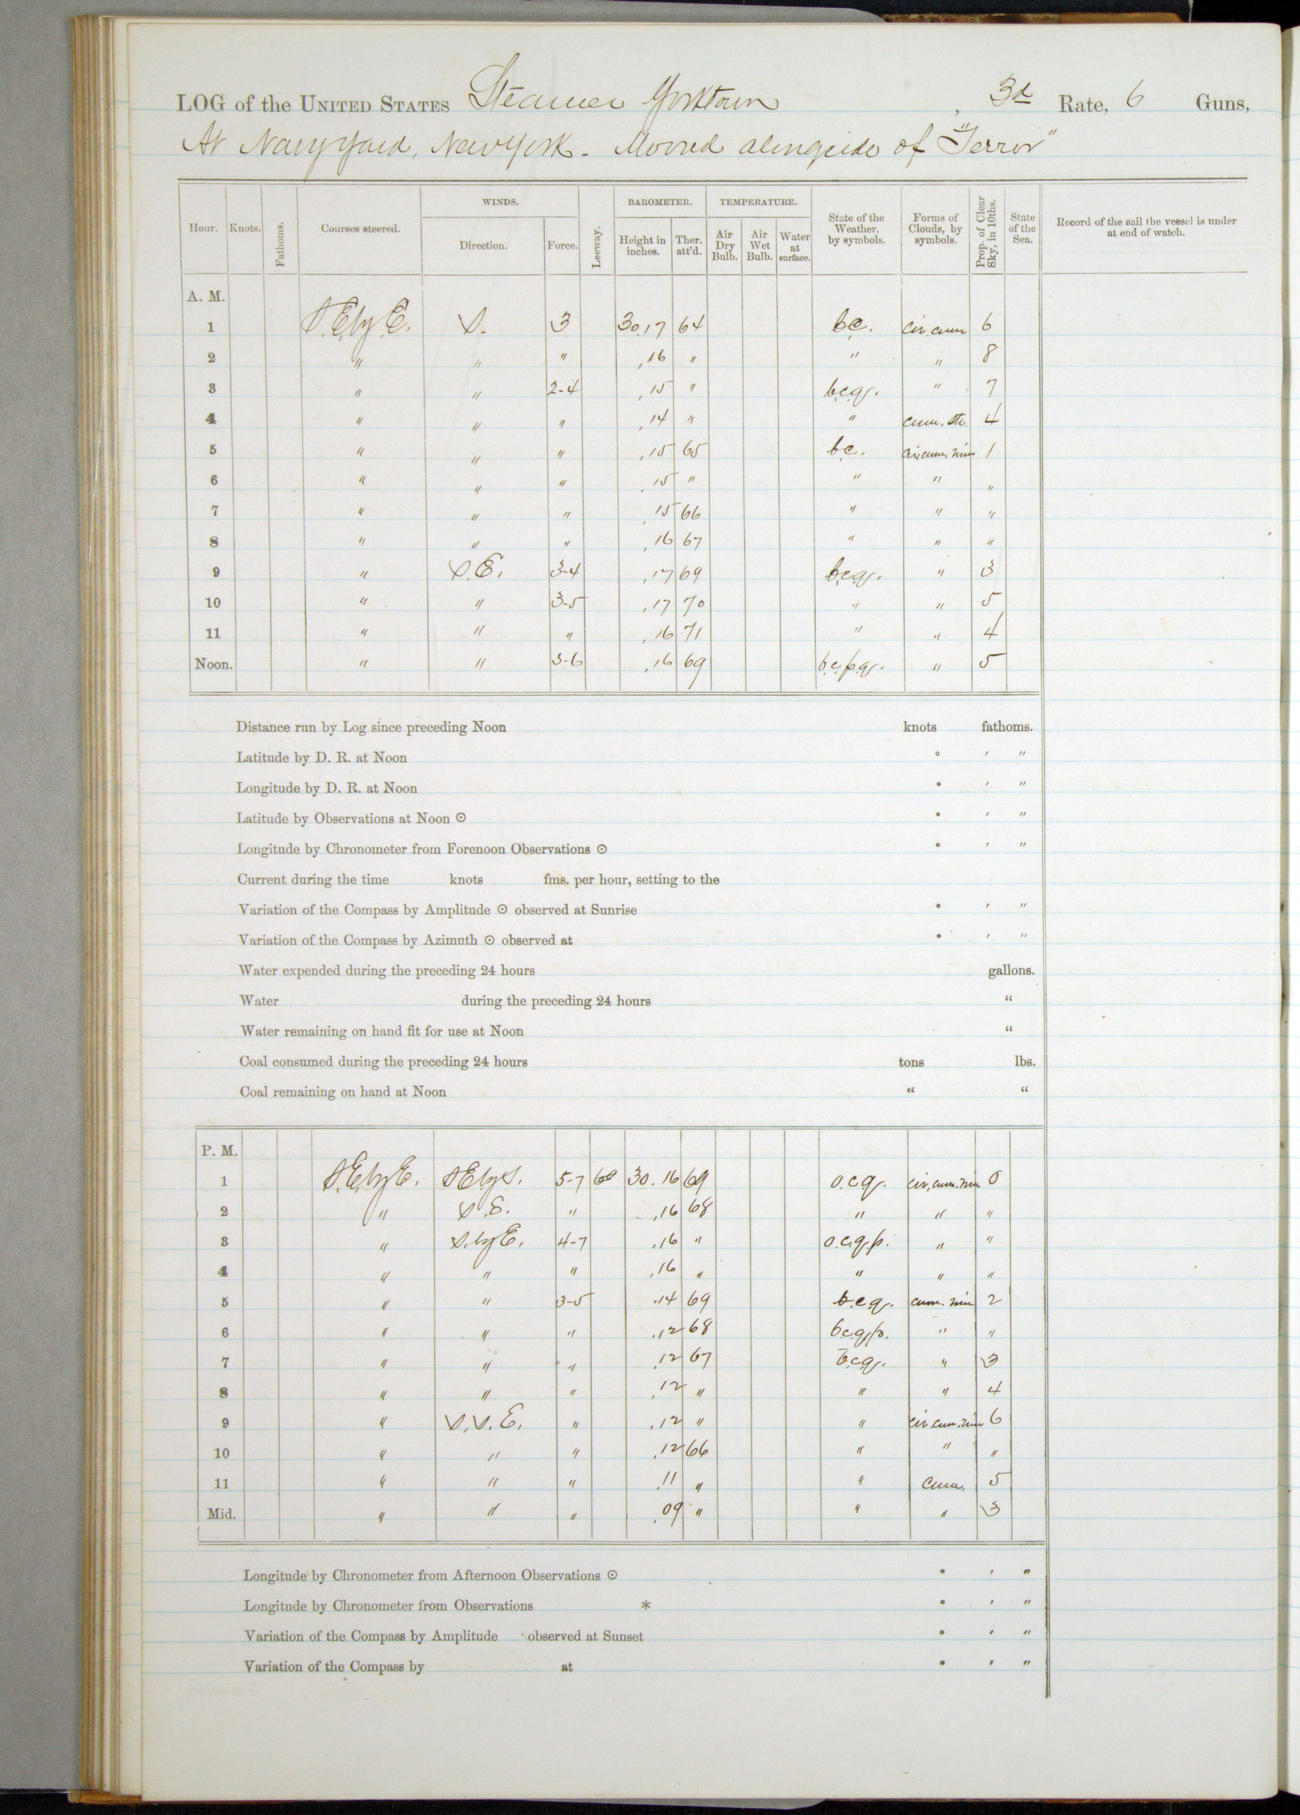 LOG of the UNITED STATES Steamer Yorktown , 3d Rate, 6 Guns,
At Navy Yard, New York. Moored alongside of "Terror"
WINDS. BAROMETER. TEMPERATURE.
Hour. Knots. Fathoms. Courses steered. Direction. Force. Leeway. Height in inches. Ther. att'd. Air Dry Bulb. Air Wet Bulb. Water at surface. State of the Weather, by symbols. Forms of Clouds, by symbols. Prop. of Clear Sky, in 10ths. State of the Sea. Record of the sail the vessel is under at end of watch.
A. M.
1 S.E.by.E. S. 3 30.17 64 b.c. cir.cum 6
2 " " " .16 " " " 8
3 " " 2-4 .15 " b.c.q. " 7
4 " " " .14 " " cum. str. 4
5 " " " .15 65 b.c. cir.cum.nim 1
6 " " " .15 " " " "
7 " " " .15 66 " " "
8 " " " .16 67 " " "
9 " S.E. 3-4 .17 69 b.c.q. " 3
10 " " 3-5 .17 70 " " 5
11 " " " .16 71 " " 4
Noon. " " 3-6 .16 69 b.c.p.q. " 5
Distance run by Log since preceding Noon knots fathoms.
Latitude by D. R. at Noon ° ′ ″
Longitude by D. R. at Noon ° ′ ″
Latitude by Observations at Noon ⊙ ° ′ ″
Longitude by Chronometer from Forenoon Observations ⊙ ° ′ ″
Current during the time knots fms. per hour, setting to the
Variation of the Compass by Amplitude ⊙ observed at Sunrise ° ′ ″
Variation of the Compass by Azimuth ⊙ observed at ° ′ ″
Water expended during the preceding 24 hours gallons.
Water during the preceding 24 hours “
Water remaining on hand fit for use at Noon “
Coal consumed during the preceding 24 hours tons lbs.
Coal remaining on hand at Noon “ “
P. M.
1 S.E.by E. SEbyS. 5-7 30.16 69 o.c.q. cir.cum.nim 0
2 " S.E. " .16 68 " " "
3 " S.byE. 4-7 .16 " o.c.q.p. " "
4 " " " .16 " " " "
5 " " 3-5 .14 69 b.c.q. cum. nim 2
6 " " " .12 68 b.c.q.p. " "
7 " " " .12 67 b.c.q. " 3
8 " " " .12 " " " 4
9 " S.S.E. " .12 " " cir.cum.nim 6
10 " " " .12 66 " " "
11 " " " .11 " " cum. 5
Mid. " " " .09 " " " 3
Longitude by Chronometer from Afternoon Observations ⊙ ° ′ ″
Longitude by Chronometer from Observations * ° ′ ″
Variation of the Compass by Amplitude observed at Sunset ° ′ ″
Variation of the Compass by at ° ′ ″